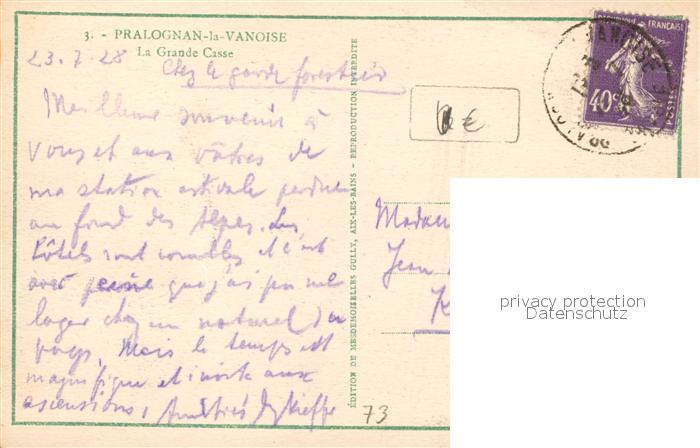 3. - PRALOGNAN-la-VANOISE
La Grande Casse
23.7.28
Chez le garde forestier
Meilleur souvenir à
Vous et aux vôtres de
ma station estivale perdue
au fond des Alpes. Les
hôtels sont combles et c'est
avec peine que j'ai pu me
loger chez un naturel du
pays. Mais le temps est
magnifique et invite aux
ascensions.
ÉDITION DE MESDEMOISELLES GULLY, AIX-LES-BAINS - REPRODUCTION INTERDITE
€
FRANÇAISE
40c
POSTES
Madame
Jean
K
privacy protection
Datenschutz
73